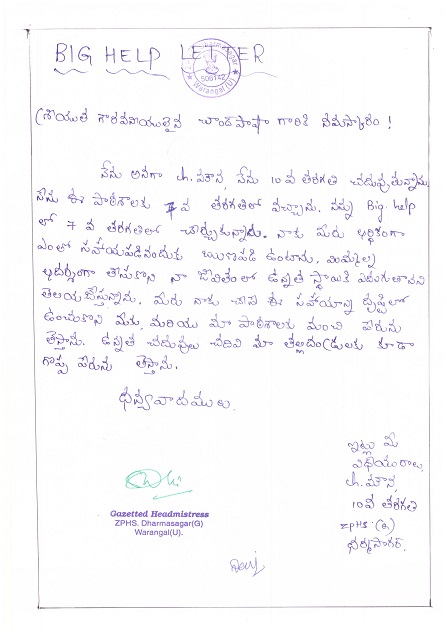 BIG HELP LETTER
506142
Warangal(U)
గౌరవనీయులైన చాందపాషా గారికి నమస్కారం !
నేను అనగా ch. మౌన, నేను 10వ తరగతి చదువుతున్నాను
నేను ఈ పాఠశాలకు 7వ తరగతిలో వచ్చాను. నన్ను Big help
లో 7 వ తరగతిలో చేర్చుకున్నారు. నాకు మీరు ఆర్థికంగా
ఎంతో సహాయపడినందుకు ఋణపడి ఉంటాను. మిమ్మల్ని
ఆదర్శంగా తీసుకొని నా జీవితంలో ఉన్నత స్థాయికి ఎదుగుతానని
తెలియచేస్తున్నాను. మీరు నాకు చేసిన ఈ సహాయాన్ని దృష్టిలో
ఉంచుకొని మీకు, మరియు మా పాఠశాలకు మంచి పేరును
తెస్తాను. ఉన్నత చదువులు చదివి మా తల్లిదండ్రులకు కూడా
గొప్ప పేరును తెస్తాను.
ధన్యవాదములు.
ఇట్లు మీ
విధేయురాలు,
ch. మౌన,
10వ తరగతి
ZPHS (G)
ధర్మసాగర్.
Gazetted Headmistress
ZPHS. Dharmasagar(G)
Warangal(U).